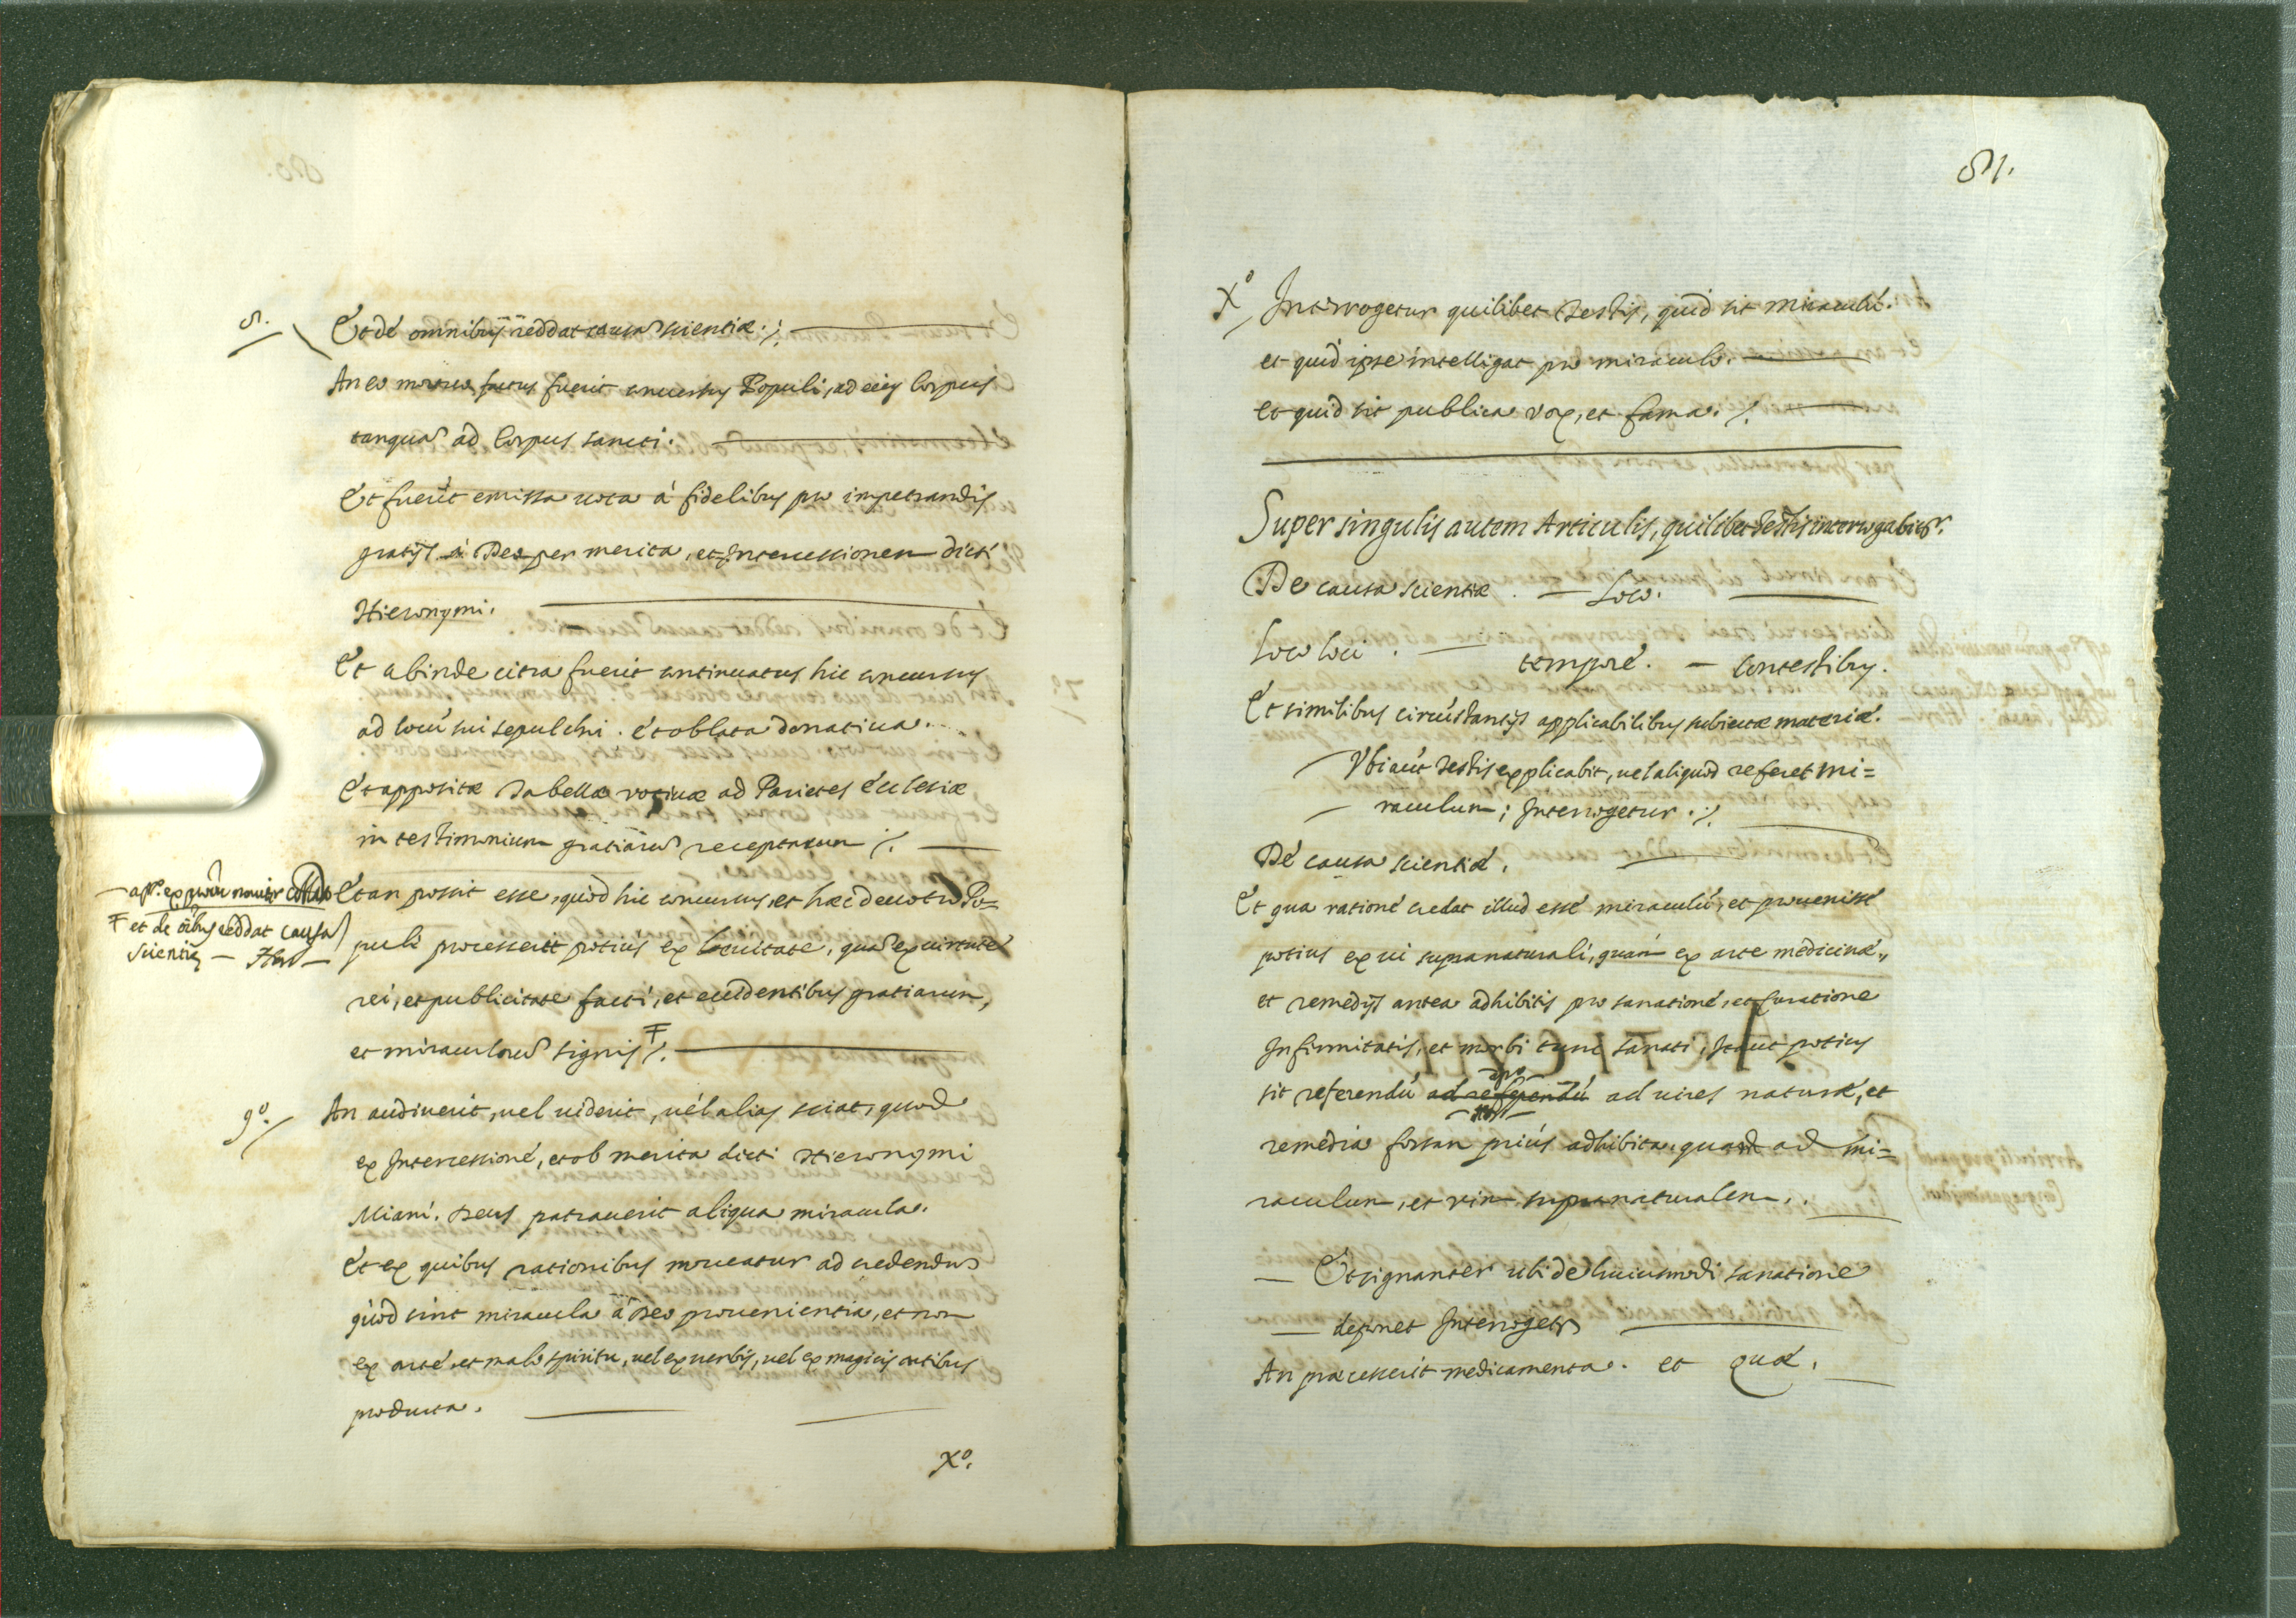 8.
Et de omnibus reddat causã scientiæ. /.
An eo mortuo factus fuerit concursus Populi, ad eius Corpus
tanquã ad Corpus sancti.
Et fuerĩt emissa uota à fidelibus pro impetrandis
gratijs à Deo per merita, et Intercessionem dicti
Hieronymi.
Et abinde citra fuerit continuatus hic concursus
ad locũ sui sepulchri. et oblata donatiua.
Et appositæ Tabellæ votiuæ ad Parietes Ecclesiæ
in testimonium gratiarũ receptarum /.
Et an possit esse, quòd hic concursus, et hæc deuotio Po-
puli processerit potiùs ex leuitate, quã ex uirtute
rei, et publicitate facti, et euidentibus gratiarum,
et miraculorũ signis Ŧ /.
Ŧ et de oĩbus reddat causã
scientiæ —
9º.
An audiuerit, uel uiderit, uèl aliàs sciat, quod
ex Intercessione, et ob merita dicti Hieronymi
Miani. Deus patrauerit aliqua miracula.
Et ex quibus rationibus moueatur ad credendũ
quòd sint miracula à Deo prouenientia, et non
ex arte, et malo spiritu, uel ex uerbis, uel ex magicis artibus
producta.
Xº.
81.
Xº
Interrogetur quilibet Testis, quid sit miraculũ.
et quid ipse intelligat pro miraculo.
et quid sit publica vox, et fama. /.
Super singulis autem Articulis, quilibet Testis interrogabitr.
De causa scientiæ. — Loco.
Loco loci. — tempore. — Contestibus.
Et similibus circũstantijs applicabilibus subiectæ materiæ.
Vbi aũt Testis explicabit, uel aliquod referet mi=
raculum; Interrogetur. /.
De causa scientiæ.
Et qua ratione credat illud esse miraculũ, et prouenisse
potius ex ui supranaturali, quàm ex arte medicinæ,
et remedijs antea adhibitis pro sanatione, et curatione
Infirmitatis, et morbi tunc sanati, Ita ut potius
sit referendũ ad referendũ ad uires naturæ, et
remedia forsan priùs adhibita, quam ad mi=
raculum, et vim supranaturalem.
— Et signanter ubi de huiusmodi sanatione
— deponet Interrogetr
An præcesserit medicamenta. et quæ.